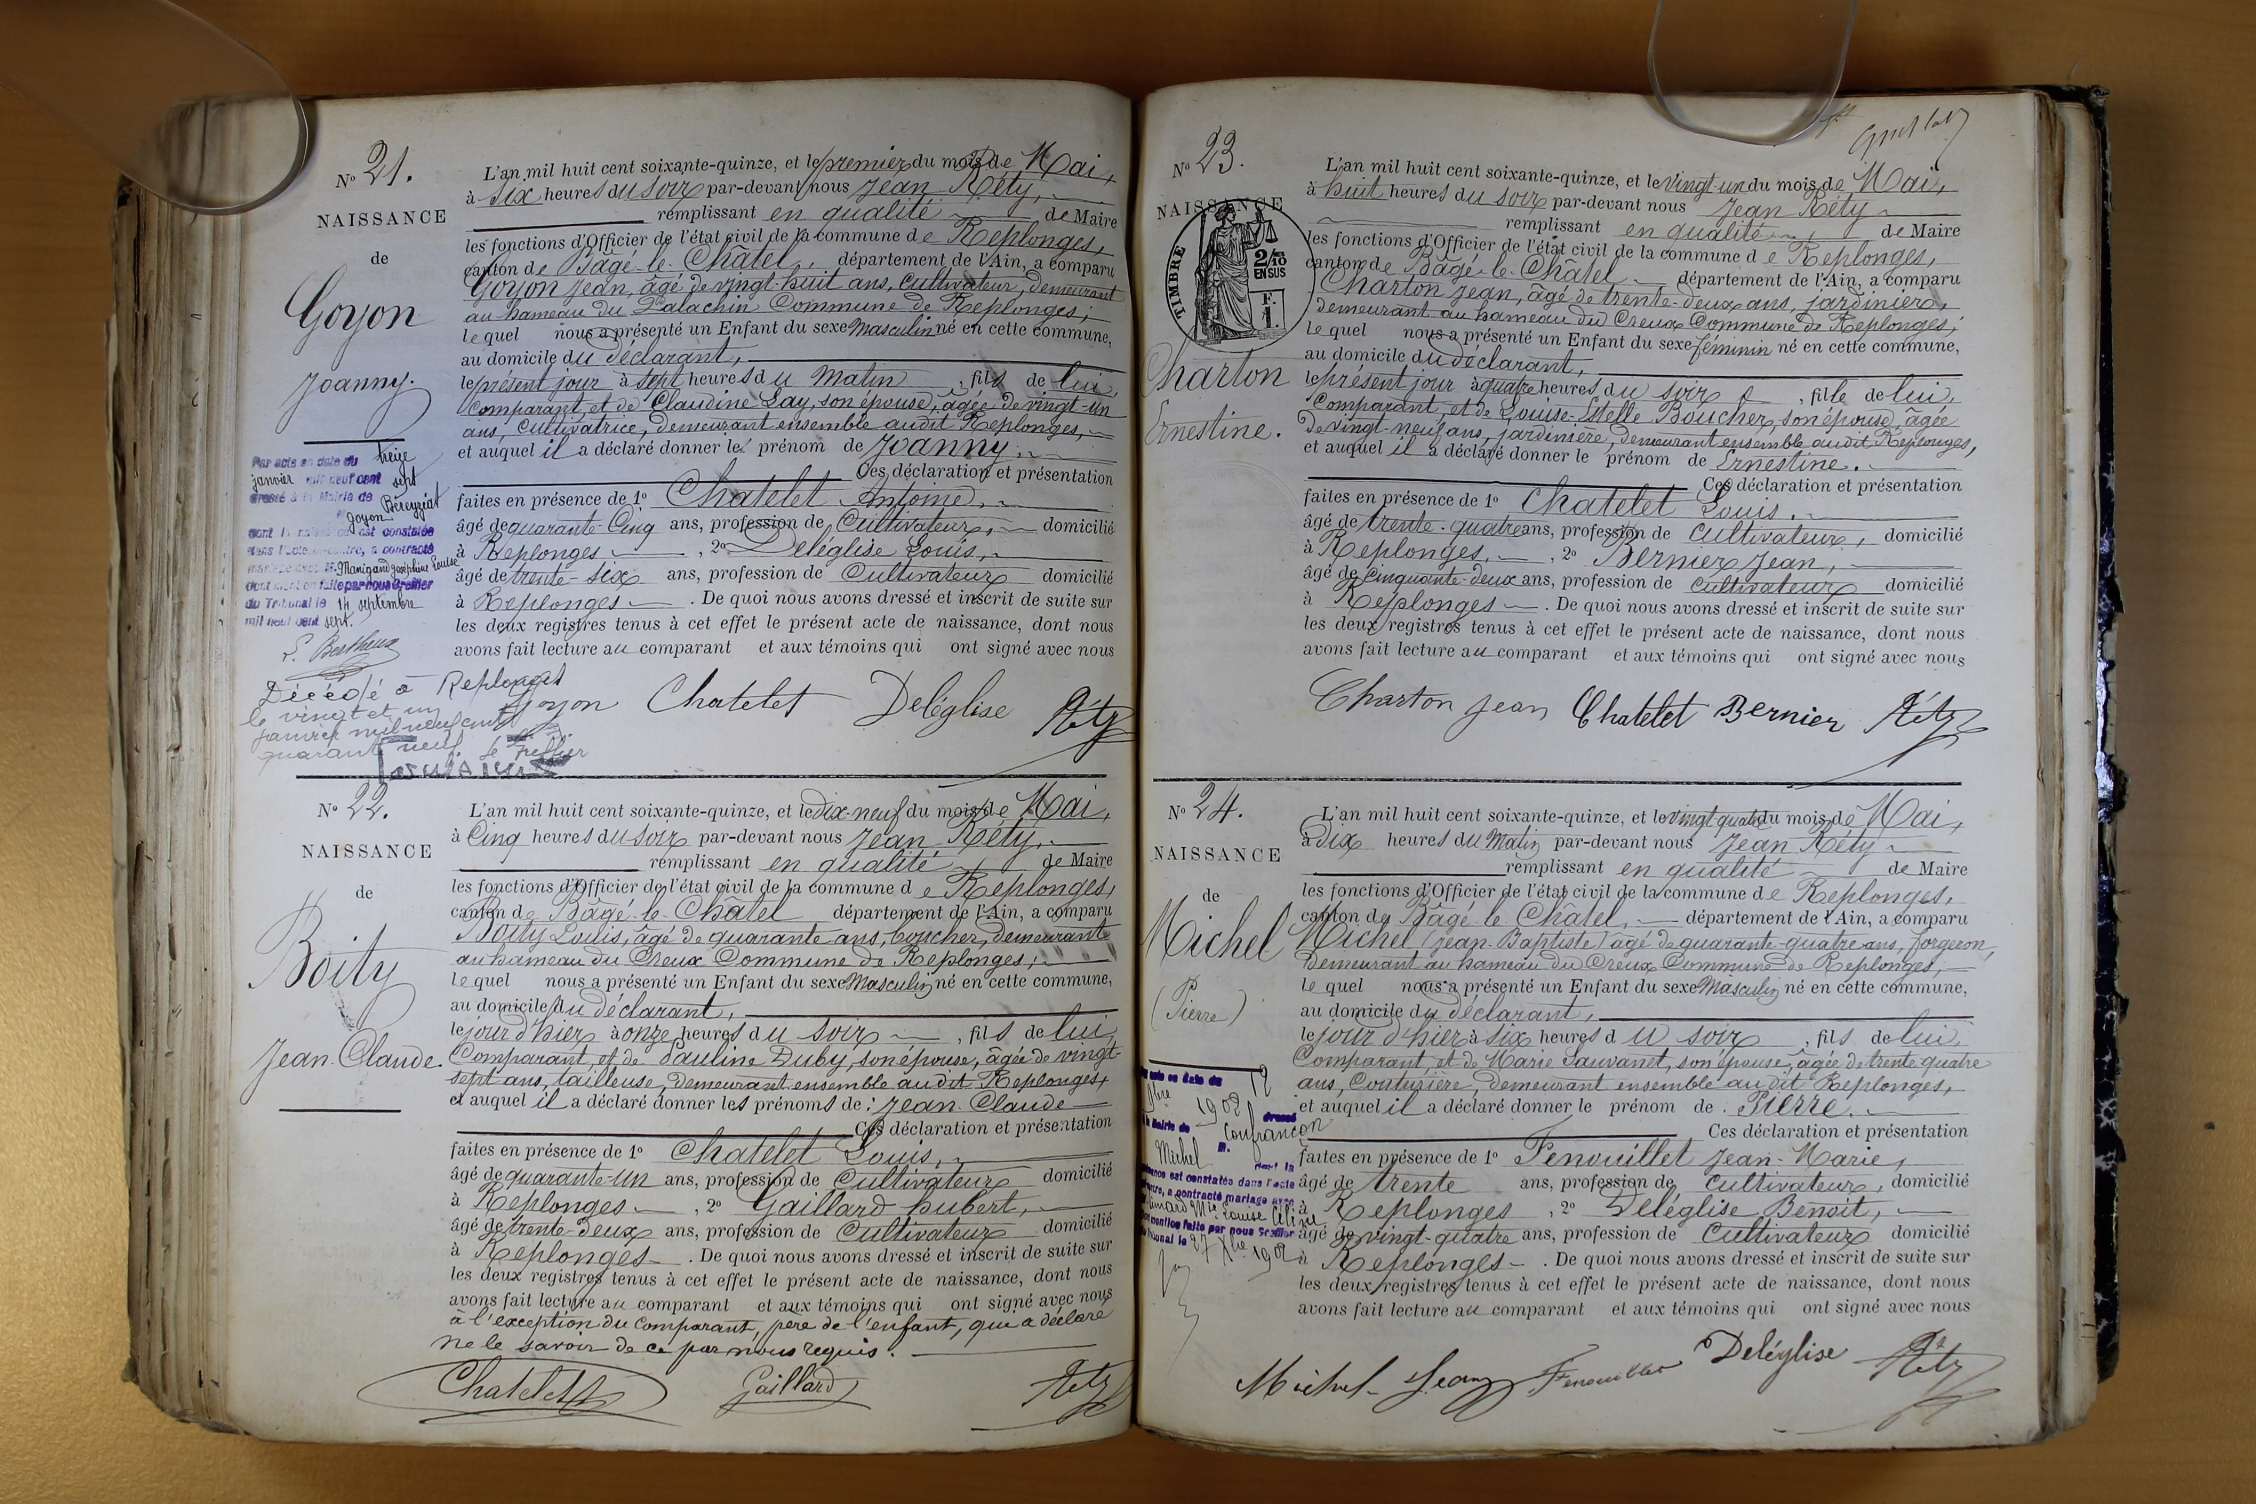 N° 21.
NAISSANCE
de
Goyon
Joanny.
Par acte en date du treize
janvier mil neuf cent sept
dressé à la Mairie de Béreyziat
Goyon
dont la naissance est constatée
dans l'acte ci-contre, a contracté
mariage avec Manigand Joséphine Louise
Dont mention faite par nous Greffier
du Tribunal le 14 septembre
mil neuf cent sept.
Décédé à Replonges
le vingt et un
janvier mil neuf cent
quarante neuf. Le Greffier
L'an mil huit cent soixante-quinze, et le premier du mois de Mai,
à six heures du soir par-devant nous Jean Réty,
remplissant en qualité de Maire
les fonctions d'Officier de l'état civil de la commune de Replonges,
canton de Bâgé-le-Châtel, département de l'Ain, a comparu
Goyon Jean, âgé de vingt-huit ans, cultivateur, demeurant
au hameau du Palachin Commune de Replonges;
lequel nous a présenté un Enfant du sexe masculin né en cette commune,
au domicile du déclarant,
le présent jour à sept heures du matin, fils de lui,
comparant, et de Claudine Lay, son épouse, âgée de vingt-un
ans, cultivatrice, demeurant ensemble audit Replonges,
et auquel il a déclaré donner le prénom de Joanny.
Ces déclaration et présentation
faites en présence de 1° Chatelet Antoine,
âgé de quarante-cinq ans, profession de cultivateur, domicilié
à Replonges, 2° Deléglise Louis,
âgé de trente-six ans, profession de cultivateur domicilié
à Replonges. De quoi nous avons dressé et inscrit de suite sur
les deux registres tenus à cet effet le présent acte de naissance, dont nous
avons fait lecture au comparant et aux témoins qui ont signé avec nous
Goyon Chatelet Deléglise Réty
N° 22.
NAISSANCE
de
Boity
Jean-Claude.
L'an mil huit cent soixante-quinze, et le dix-neuf du mois de Mai,
à cinq heures du soir par-devant nous Jean Réty,
remplissant en qualité de Maire
les fonctions d'Officier de l'état civil de la commune de Replonges,
canton de Bâgé-le-Châtel département de l'Ain, a comparu
Boity Louis, âgé de quarante ans, boucher, demeurant
au hameau du Creux Commune de Replonges;
lequel nous a présenté un Enfant du sexe Masculin né en cette commune,
au domicile du déclarant,
le jour d'hier à onze heures du soir, fils de lui,
comparant, et de Pauline Duby, son épouse, âgée de vingt-
sept ans, tailleuse, demeurant ensemble audit Replonges,
et auquel il a déclaré donner les prénoms de: Jean-Claude
Ces déclaration et présentation
faites en présence de 1° Chatelet Louis,
âgé de quarante-un ans, profession de Cultivateur domicilié
à Replonges, 2° Gaillard hubert,
âgé de trente-deux ans, profession de Cultivateur domicilié
à Replonges. De quoi nous avons dressé et inscrit de suite sur
les deux registres tenus à cet effet le présent acte de naissance, dont nous
avons fait lecture au comparant et aux témoins qui ont signé avec nous
à l'exception du comparant, père de l'enfant, qui a déclaré
ne le savoir de ce par nous requis.
Chatelet Gaillard Réty
N° 23.
NAISSANCE
TIMBRE
2/10
EN SUS
F.
1.
Charton
Ernestine.
L'an mil huit cent soixante-quinze, et le vingt-un du mois de Mai,
à huit heures du soir par-devant nous Jean Réty
remplissant en qualité de Maire
les fonctions d'Officier de l'état civil de la commune de Replonges,
canton de Bâgé-le-Châtel département de l'Ain, a comparu
Charton Jean, âgé de trente-deux ans, jardinier,
demeurant au hameau du Creux Commune de Replonges;
lequel nous a présenté un Enfant du sexe féminin né en cette commune,
au domicile du déclarant,
le présent jour à quatre heures du soir, fille de lui,
comparant, et de Louise-Estelle Boucher, son épouse, âgée
de vingt-neuf ans, jardinière, demeurant ensemble audit Replonges,
et auquel il a déclaré donner le prénom de Ernestine.
Ces déclaration et présentation
faites en présence de 1° Chatelet Louis.
âgé de trente-quatre ans, profession de cultivateur, domicilié
à Replonges, 2° Bernier Jean,
âgé de cinquante-deux ans, profession de cultivateur domicilié
à Replonges. De quoi nous avons dressé et inscrit de suite sur
les deux registres tenus à cet effet le présent acte de naissance, dont nous
avons fait lecture au comparant et aux témoins qui ont signé avec nous
Charton Jean Chatelet Bernier Réty
N° 24.
NAISSANCE
de
Michel
(Pierre)
acte en date du 12
1908 dressé
Mairie de Confrançon
M. Michel dont la
naissance est constatée dans l'acte
a contracté mariage avec
Mie Louise Céline
mention faite par nous Greffier
Tribunal le 27 Xbre 1908
L'an mil huit cent soixante-quinze, et le vingt quatre du mois de Mai,
à Dix heures du Matin par-devant nous Jean Réty
remplissant en qualité de Maire
les fonctions d'Officier de l'état civil de la commune de Replonges,
canton de Bâgé-le-Châtel, département de l'Ain, a comparu
Michel (Jean-Baptiste) âgé de quarante-quatre ans, forgeron,
demeurant au hameau du Creux Commune de Replonges,
lequel nous a présenté un Enfant du sexe Masculin né en cette commune,
au domicile du déclarant,
le jour d'hier à six heures du soir, fils de lui,
Comparant, et de Marie Sauvanet, son épouse, âgée de trente quatre
ans, couturière, demeurant ensemble au dit Replonges,
et auquel il a déclaré donner le prénom de Pierre.
Ces déclaration et présentation
faites en présence de 1° Fenouillet Jean-Marie,
âgé de trente ans, profession de cultivateur, domicilié
à Replonges, 2° Deléglise Benoit,
âgé de vingt-quatre ans, profession de Cultivateur domicilié
à Replonges. De quoi nous avons dressé et inscrit de suite sur
les deux registres tenus à cet effet le présent acte de naissance, dont nous
avons fait lecture au comparant et aux témoins qui ont signé avec nous
Michel Jean Fenouillet Deléglise Réty